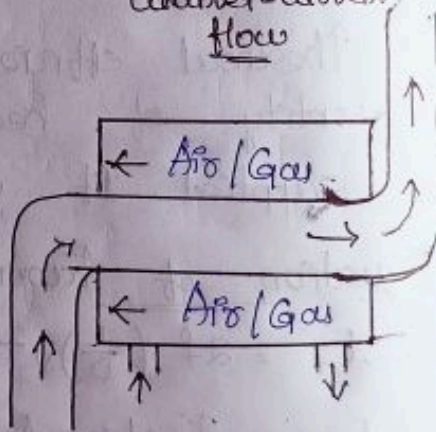 flow
Air/Gas
Air/Gas